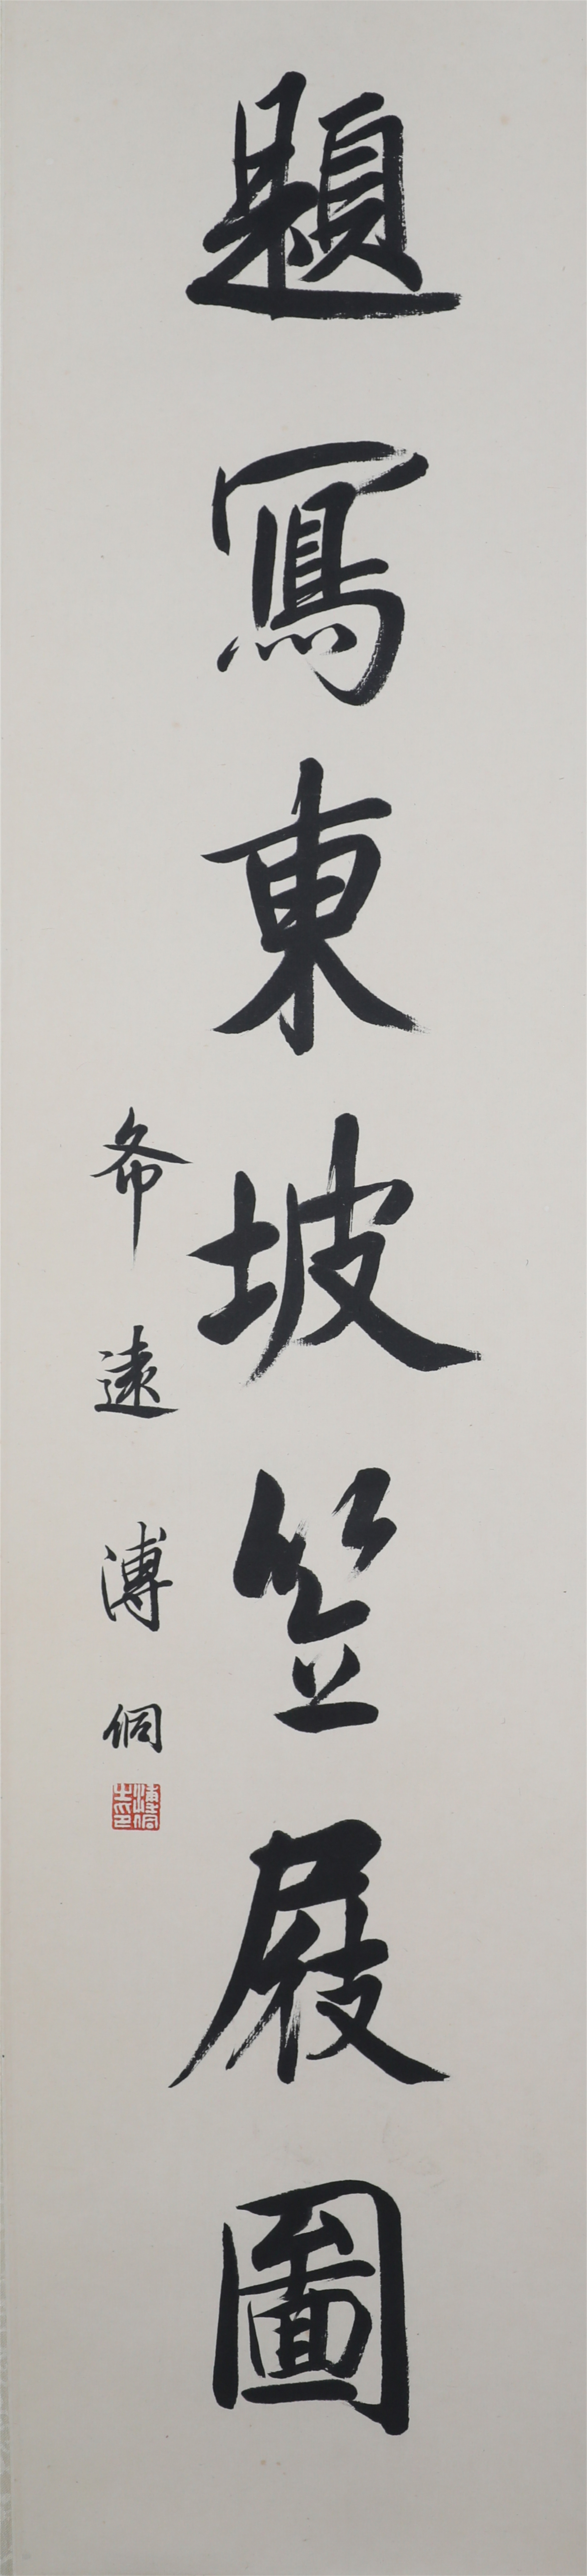 題寫東坡笠屐圖
希遠 溥侗
溥侗之印